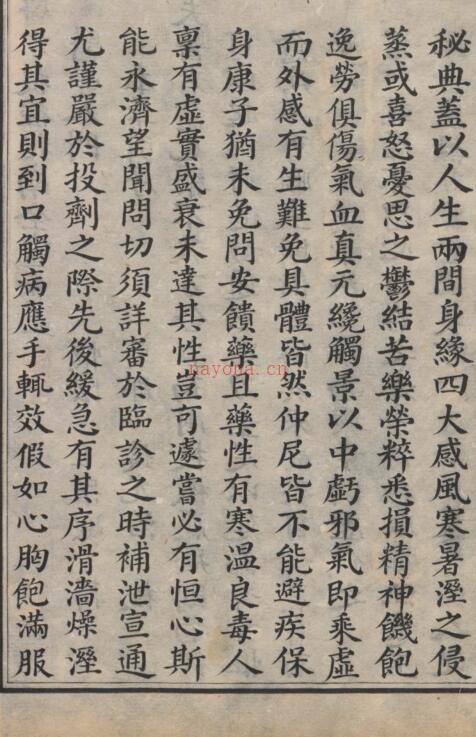 秘典蓋以人生兩間身緣四大感風寒暑溼之侵
蒸或喜怒憂思之鬱結苦樂榮粹悉損精神饑飽
逸勞俱傷氣血真元纔觸景以中虧邪氣即乘虛
而外感有生難免具體皆然仲尼皆不能避疾保
身康子猶未免問安饋藥且藥性有寒温良毒人
禀有虛實盛衰未達其性豈可遽嘗必有恒心斯
能永濟望聞問切須詳審於臨診之時補泄宣通
尤謹嚴於投劑之際先後緩急有其序滑濇燥溼
得其宜則到口觸病應手輒效假如心胸飽滿服
nayona.cn